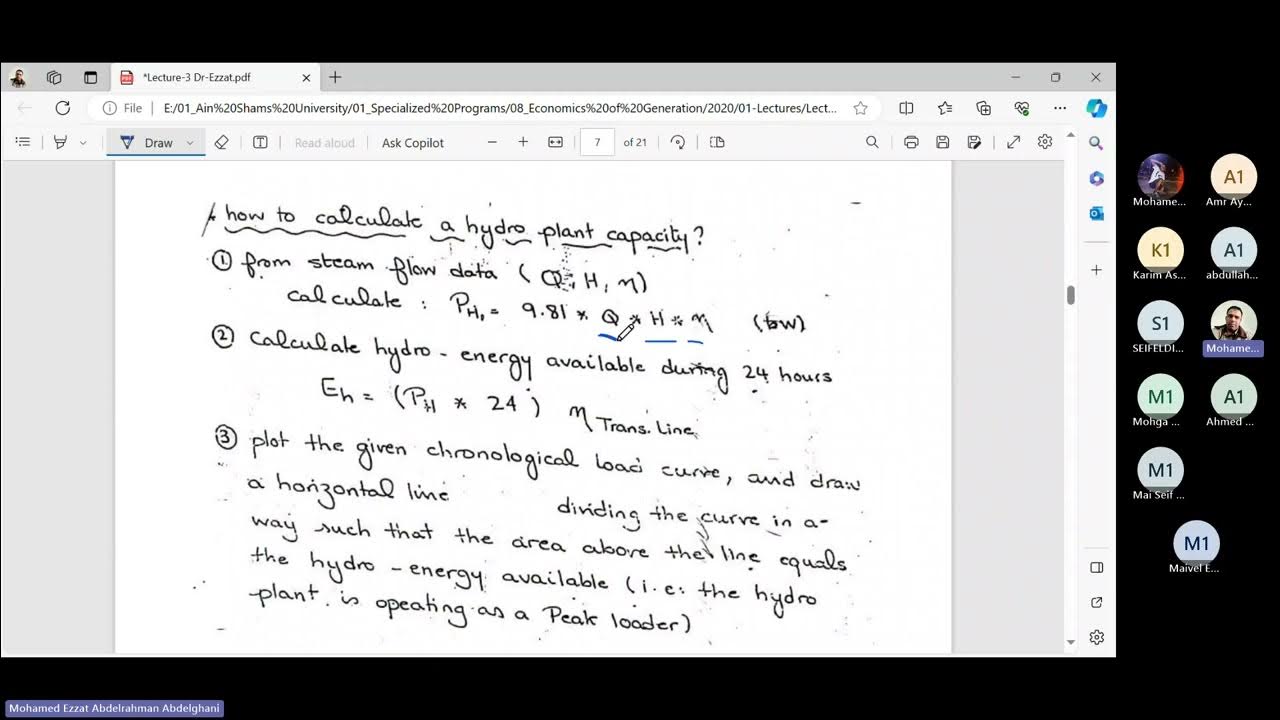 *Lecture-3 Dr-Ezzat.pdf
File
E:/01_Ain%20Shams%20University/01_Specialized%20Programs/08_Economics%20of%20Generation/2020/01-Lectures/Lect...
Draw
Read aloud
Ask Copilot
7
of 21
how to calculate a hydro plant capacity?
① from steam flow data (Q, H, η)
calculate : PH₁ = 9.81 * Q * H * η (kW)
② Calculate hydro - energy available during 24 hours
Eh = (PH * 24) η Trans. Line
③ plot the given chronological load curve, and draw
a horizontal line dividing the curve in a-
way such that the area above the line equals
the hydro - energy available (i.e: the hydro
plant is opeating as a Peak loader)
Mohame...
A1
Amr Ay...
K1
Karim As...
A1
abdullah...
S1
SEIFELDI...
Mohame...
M1
Mohga ...
A1
Ahmed ...
M1
Mai Seif ...
M1
Maivel E...
Mohamed Ezzat Abdelrahman Abdelghani